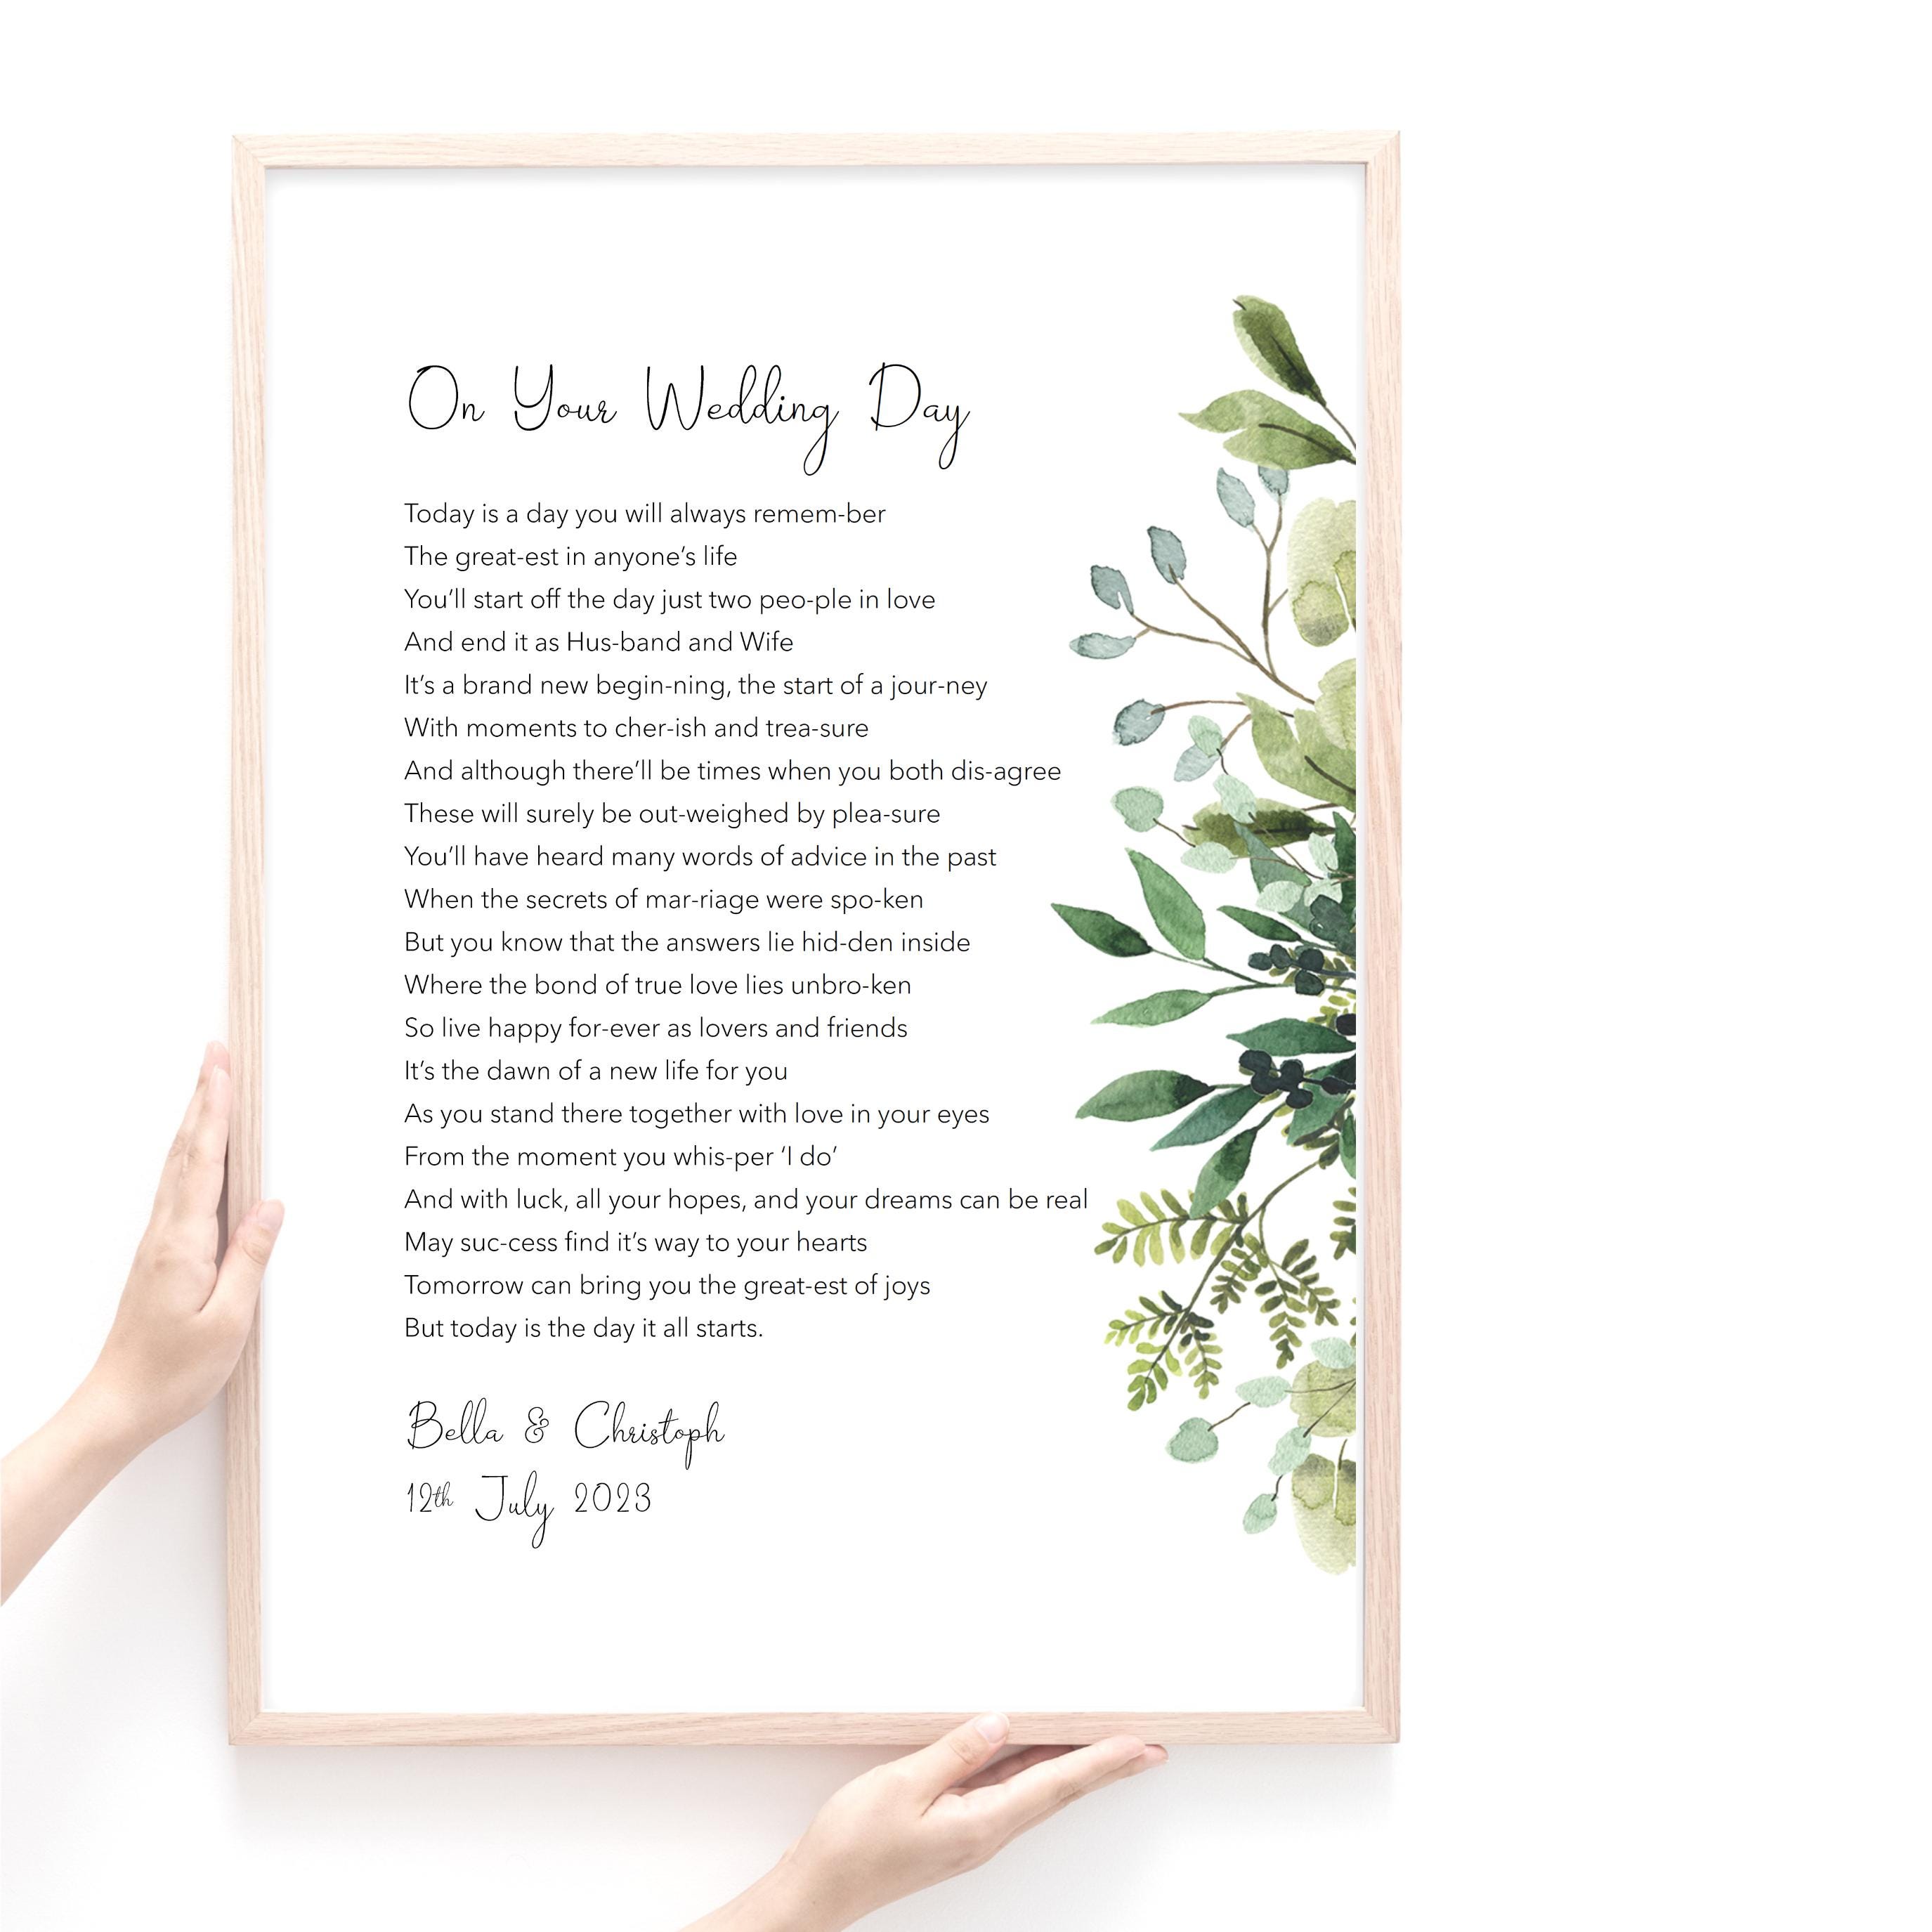 On Your Wedding Day
Today is a day you will always remem-ber
The great-est in anyone’s life
You’ll start off the day just two peo-ple in love
And end it as Hus-band and Wife
It’s a brand new begin-ning, the start of a jour-ney
With moments to cher-ish and trea-sure
And although there’ll be times when you both dis-agree
These will surely be out-weighed by plea-sure
You’ll have heard many words of advice in the past
When the secrets of mar-riage were spo-ken
But you know that the answers lie hid-den inside
Where the bond of true love lies unbro-ken
So live happy for-ever as lovers and friends
It’s the dawn of a new life for you
As you stand there together with love in your eyes
From the moment you whis-per ‘I do’
And with luck, all your hopes, and your dreams can be real
May suc-cess find it’s way to your hearts
Tomorrow can bring you the great-est of joys
But today is the day it all starts.
Bella & Christoph
12th July 2023